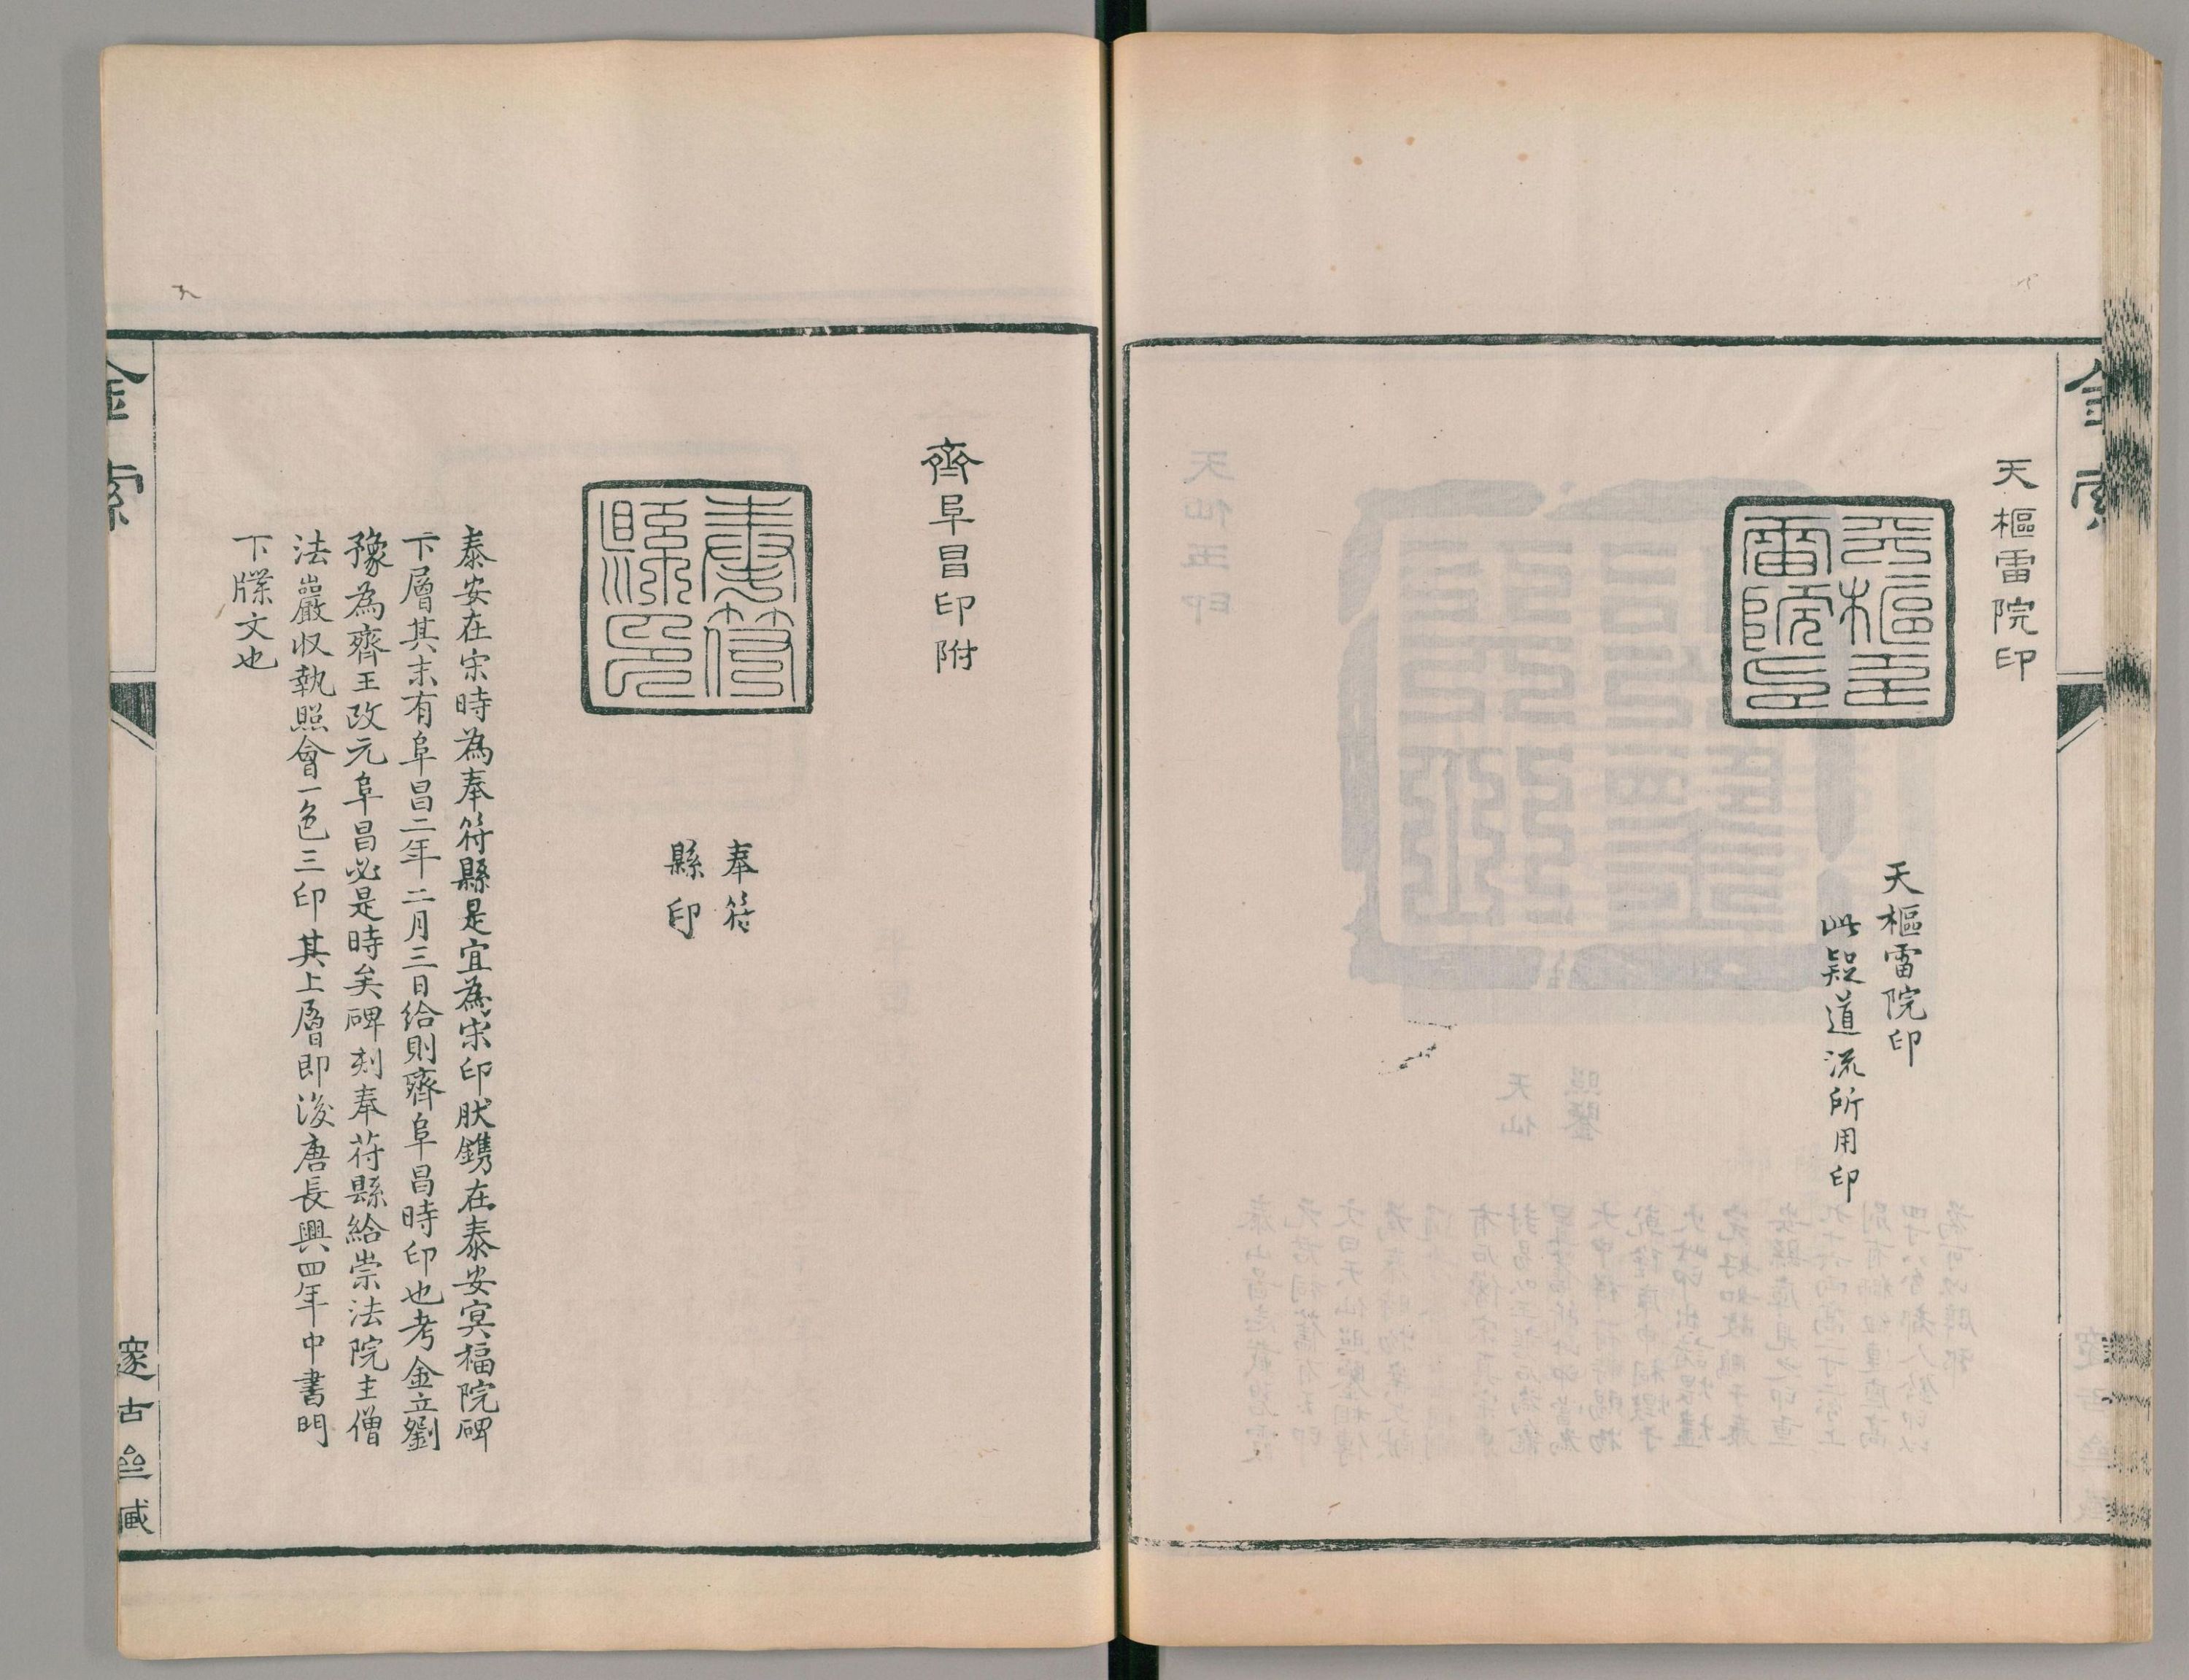 金索
天樞雷院印
天樞雷院印
天樞雷院印
此疑道流所用印
齊阜昌印附
奉符縣印
奉符
縣印
泰安在宋時為奉符縣是宜為宋印肰鐫在泰安冥福院碑
下層其末有阜昌二年二月三日給則齊阜昌時印也考金立劉
豫為齊王改元阜昌必是時矣碑刻奉苻縣給崇法院主僧
法巖収執照會一色三印其上層即後唐長興四年中書門
下牒文也
金索
邃古亝臧